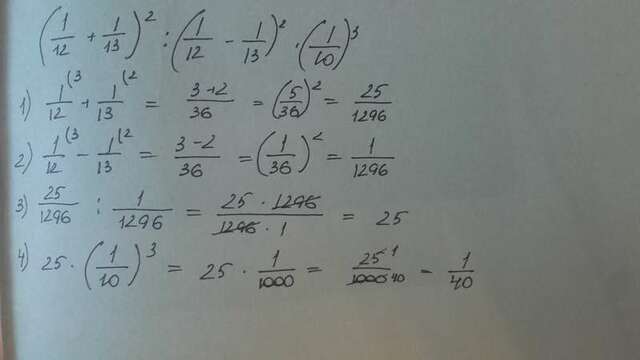 (1/12 + 1/13)² : (1/12 - 1/13)² · (1/10)³
1) 1/12 (3 + 1/13 (2 = 3+2/36 = (5/36)² = 25/1296
2) 1/12 (3 - 1/13 (2 = 3-2/36 = (1/36)² = 1/1296
3) 25/1296 : 1/1296 = 25 · 1296/1296 · 1 = 25
4) 25 · (1/10)³ = 25 · 1/1000 = 25 1/1000 40 = 1/40